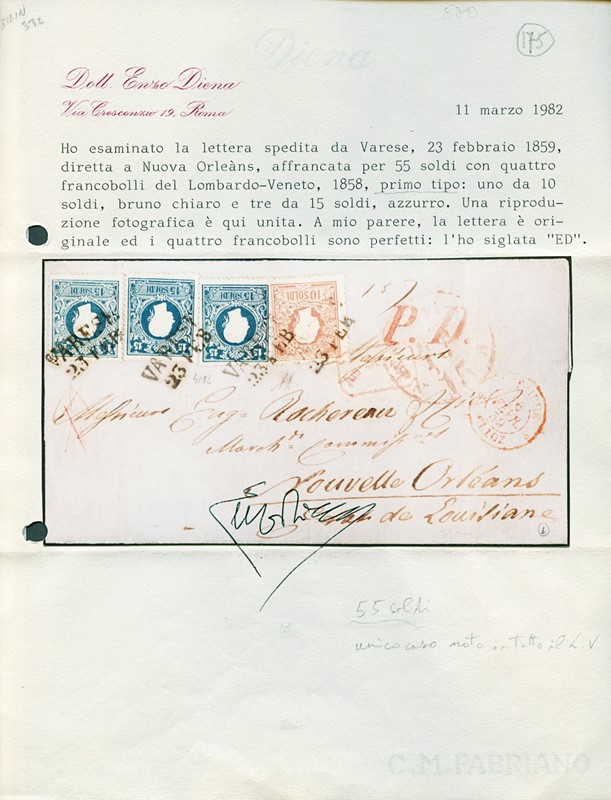 580
175
Diena
Dott. Enzo Diena
Via Crescenzio 19, Roma
11 marzo 1982
Ho esaminato la lettera spedita da Varese, 23 febbraio 1859,
diretta a Nuova Orleàns, affrancata per 55 soldi con quattro
francobolli del Lombardo-Veneto, 1858, primo tipo: uno da 10
soldi, bruno chiaro e tre da 15 soldi, azzurro. Una riprodu-
zione fotografica è qui unita. A mio parere, la lettera è ori-
ginale ed i quattro francobolli sono perfetti: l'ho siglata "ED".
15 SOLDI 15 SOLDI 15 SOLDI 10 SOLDI
VARESE VARESE
23 FEB 23 FEB 23 FEB 23 FEB
P.D.
Messieurs Eug. Rochereau &
March.ds Commission.
Nouvelle Orléans
de Louisiane
55 soldi
unico caso noto in tutto il L.V
C.M.FABRIANO